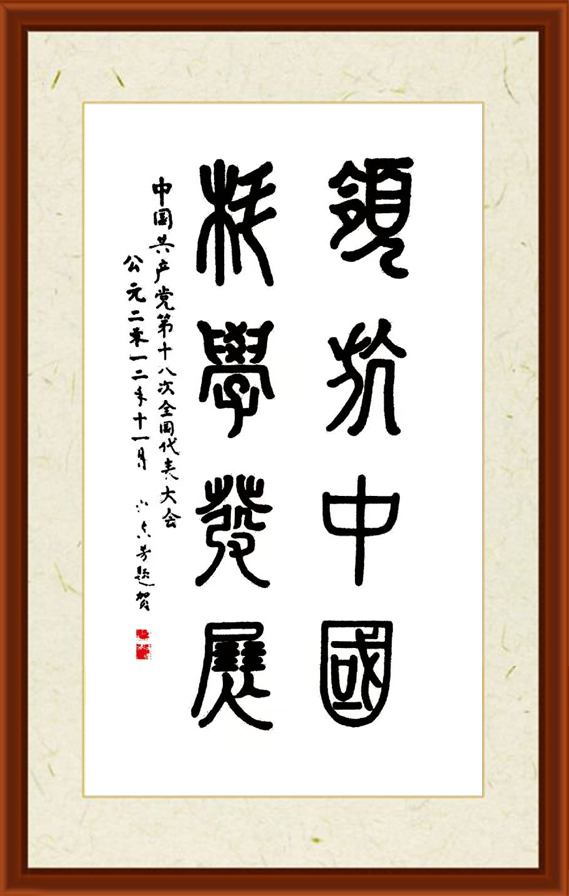 領航中國
科學發展
中国共产党第十八次全国代表大会
公元二零一二年十一月 芳题贺